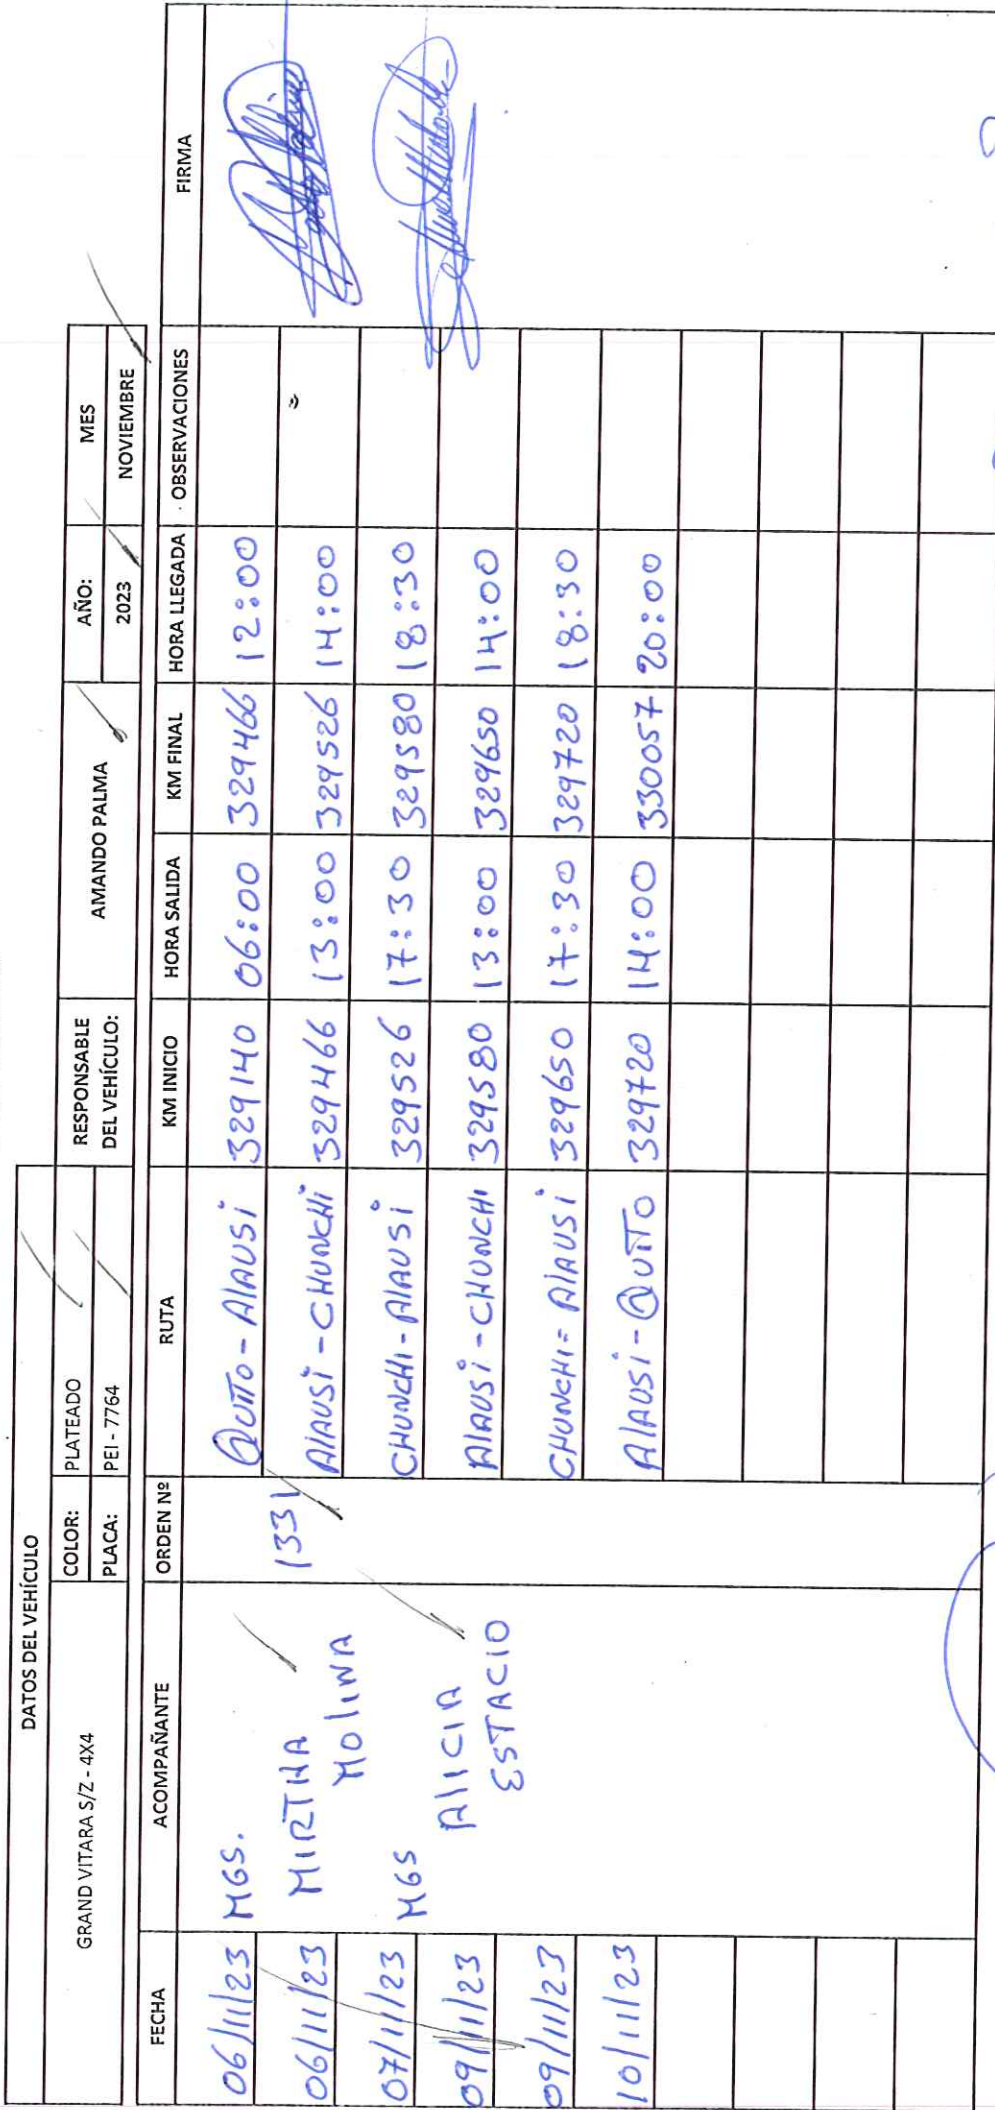 DATOS DEL VEHÍCULO
GRAND VITARA S/Z - 4X4 COLOR: PLATEADO RESPONSABLE DEL VEHÍCULO: AMANDO PALMA AÑO: MES
PLACA: PEI - 7764 2023 NOVIEMBRE
FECHA ACOMPAÑANTE ORDEN Nº RUTA KM INICIO HORA SALIDA KM FINAL HORA LLEGADA OBSERVACIONES FIRMA
06/11/23 MGS. QUITO - AlAUSi 329140 06:00 329466 12:00
06/11/23 MIRTHA MOlINA 1331 AlAUSi - CHUNCHi 329466 13:00 329526 14:00
07/11/23 MGS CHUNCHI - AlAUSi 329526 17:30 329580 18:30
09/11/23 AlICIA AlAUSi - CHUNCHI 329580 13:00 329650 14:00
09/11/23 ESTACIO CHUNCHI = AlAUSi 329650 17:30 329720 18:30
10/11/23 AlAUSi - QUiTO 329720 14:00 330057 20:00